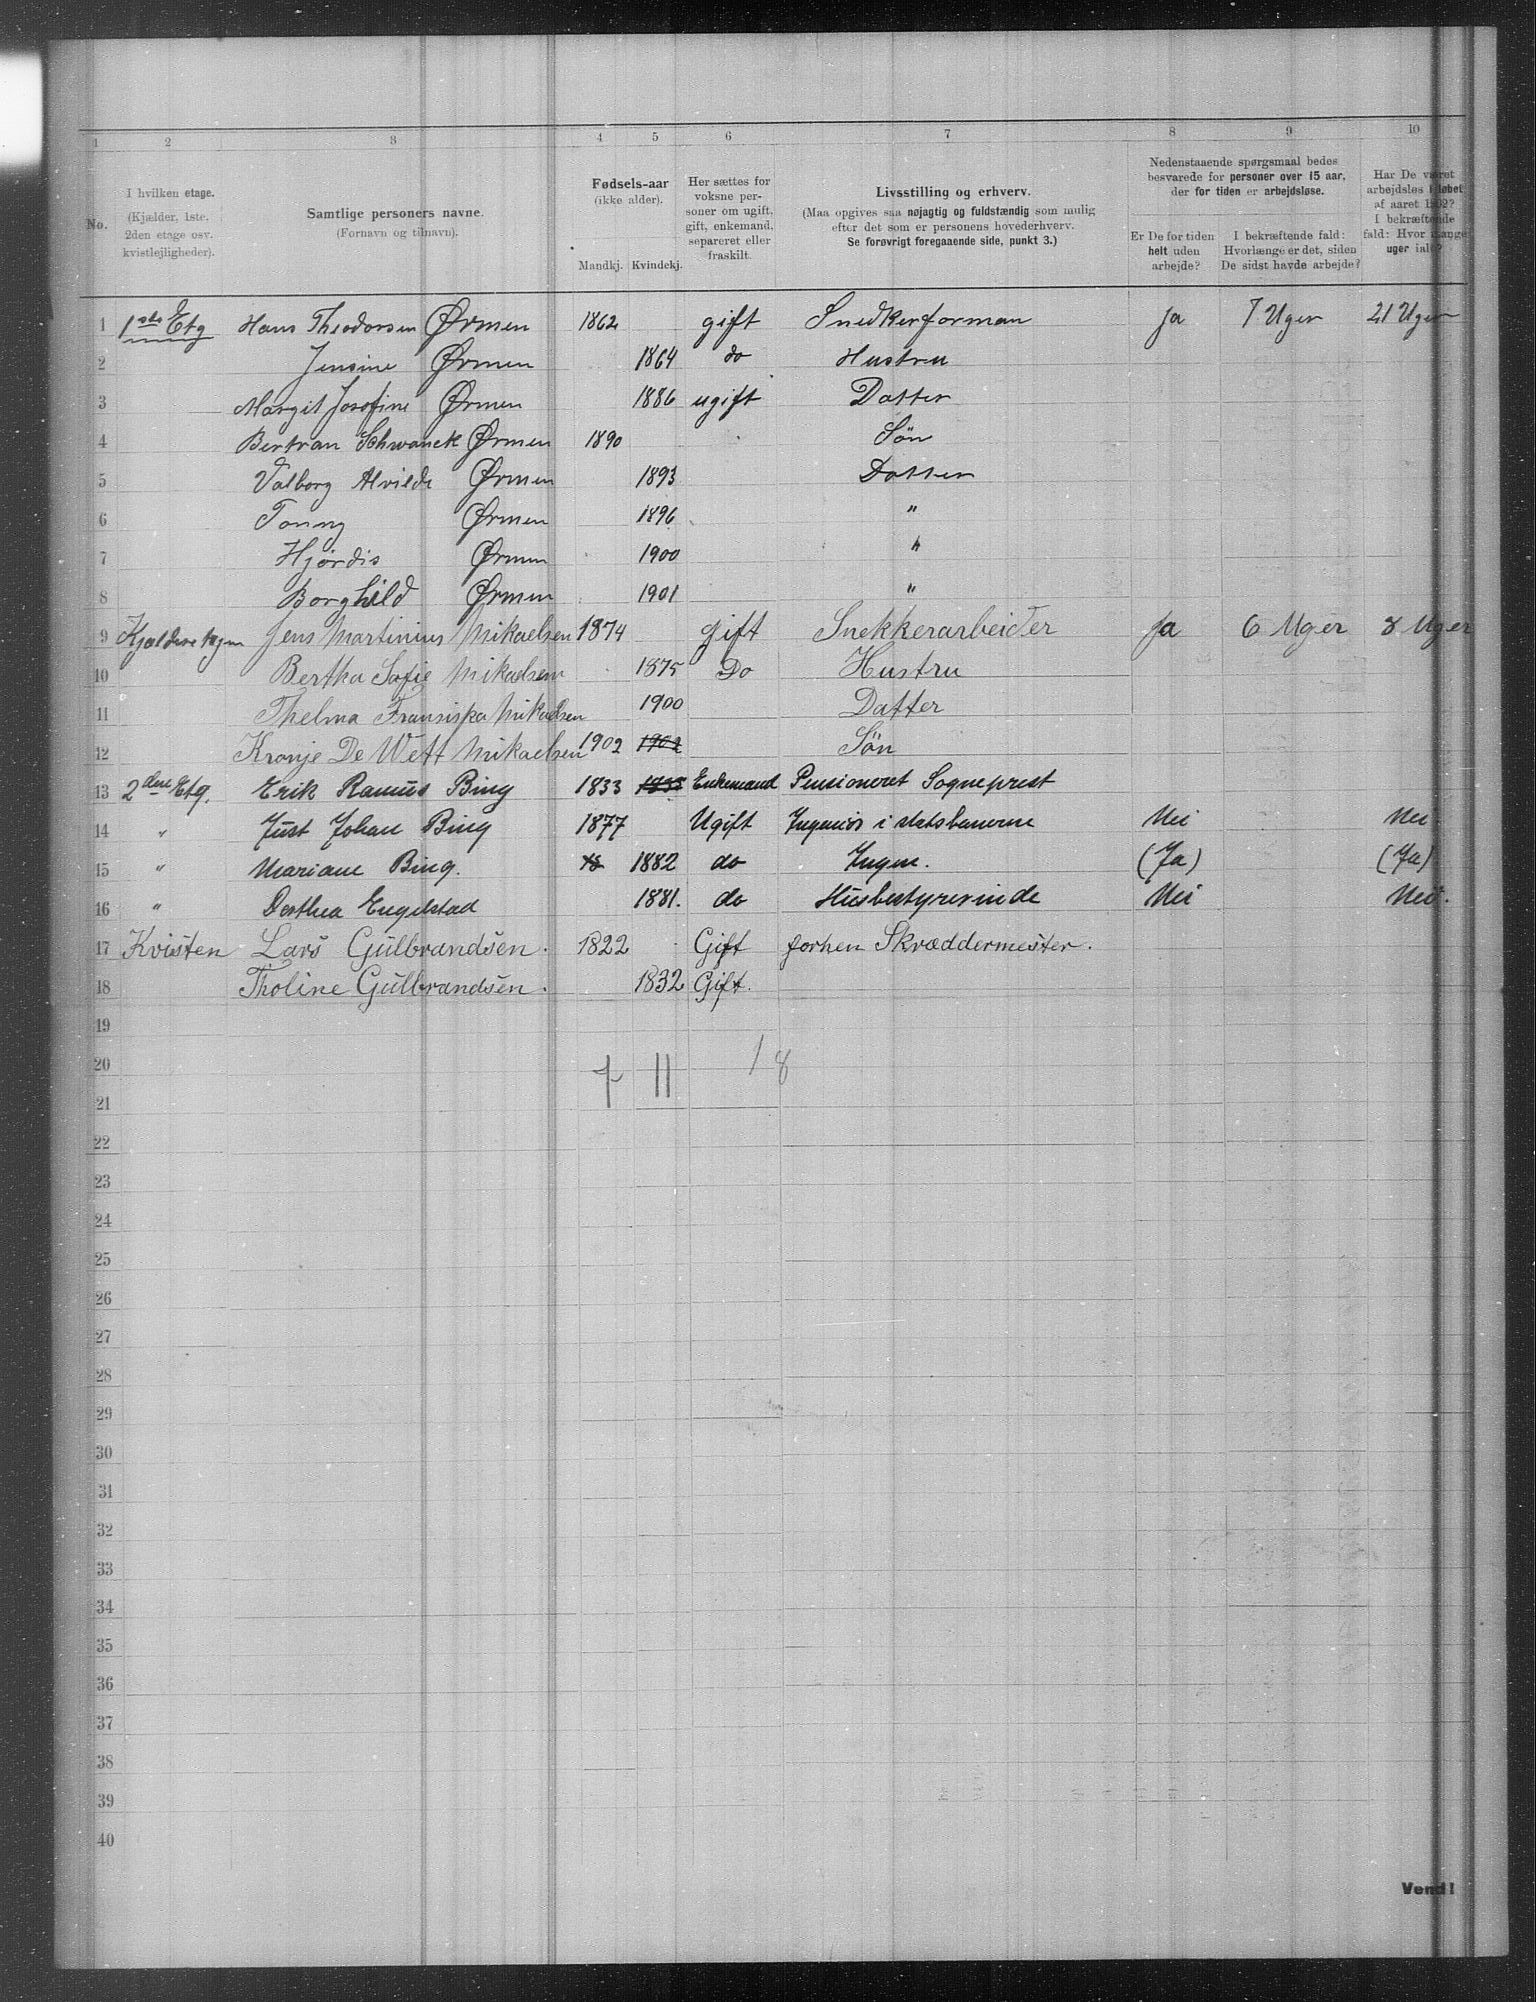 1 2 3 4 5 6 7 8 9 10
No.
I hvilken etage.
(Kjælder, 1ste.
2den etage osv.
kvistlejligheder).
Samtlige personers navne.
(Fornavn og tilnavn).
Fødsels-aar
(ikke alder).
Mandkj. Kvindekj.
Her sættes for
voksne per-
soner om ugift,
gift, enkemand,
separeret eller
fraskilt.
Livsstilling og erhverv.
(Maa opgives saa nøjagtig og fuldstændig som mulig
efter det som er personens hovederhverv.
Se forøvrigt foregaaende side, punkt 3.)
Nedenstaaende spørgsmaal bedes
besvarede for personer over 15 aar,
der for tiden er arbejdsløse.
Er De for tiden
helt uden
arbejde?
I bekræftende fald:
Hvorlænge er det, siden
De sidst havde arbejde?
Har De været
arbejdsløs i løbet
af aaret 1902?
I bekræftende
fald: Hvor mange
uger ialt?
1 1ste Etg Hans Theodorsen Ørmen 1862 gift Snedkerforman Ja 7 Uger 21 Uger
2 Jensine Ørmen 1864 do Hustru
3 Margit Josefine Ørmen 1886 ugift Datter
4 Bertran Schwanck Ørmen 1890 Søn
5 Valborg Alvilde Ørmen 1893 Datter
6 Tonny Ørmen 1896 "
7 Hjørdis Ørmen 1900 "
8 Borghild Ørmen 1901 "
9 Jens Martinius Mikaelsen 1874 Gift Snekkerarbeider Ja 6 Uger 8 Uger
10 Bertha Sofie Mikaelsen 1875 Do Hustru
11 Thelma Fransiska Mikaelsen 1900 Datter
12 Kronje De Wett Mikaelsen 1902 1902 Søn
13 2den Etg. Erik Ramus Bing 1833 1833 Enkemand Pensioneret Sogneprest
14 " Just Johan Bing 1877 Ugift Ingeniør i statsbanerne Nei Nei
15 " Mariane Bing. 18 1882 do Ingen. (Ja) (Ja)
16 " Dorthea Engelstad 1881. do Husbestyrerinde Nei Nei.
17 Kvisten Lars Gulbrandsen. 1822 Gift forhen Skræddermester.
18 Tholine Gulbrandsen. 1832 Gift.
19
20 7 11 18
21
22
23
24
25
26
27
28
29
30
31
32
33
34
35
36
37
38
39
40
Vend!